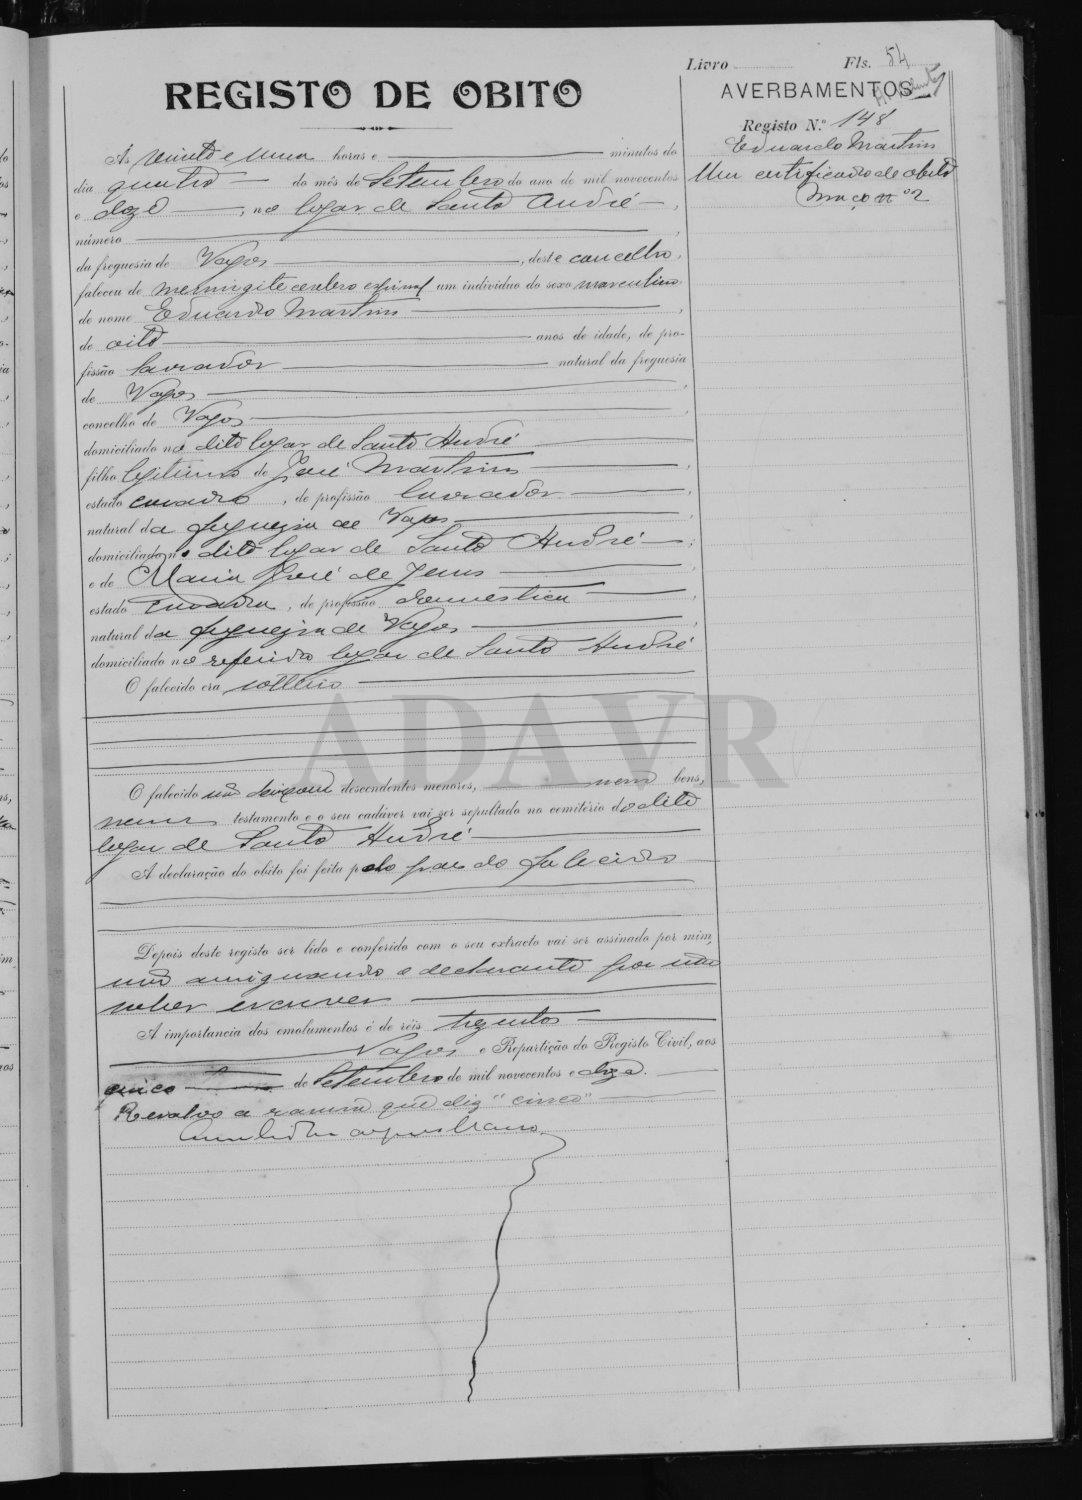 Livro Fls. 54
REGISTO DE OBITO
AVERBAMENTOS
Registo N.º 148
Eduardo Martins
Um certificado de obito
maço nº 2
Às vinte e uma horas e minutos do
dia quatro do mês de Setembro do ano de mil novecentos
e doze, no logar de Santo André,
número
da freguesia de Vagos, deste concelho,
faleceu de meningite cerebro espinal um individuo do sexo masculino
de nome Eduardo Martins,
de oito anos de idade, de pro-
fissão lavrador natural da freguesia
de Vagos,
concelho de Vagos,
domiciliado no dito logar de Santo André
filho legitimo de José Martins,
estado casado, de profissão lavrador,
natural da freguezia de Vagos,
domiciliado no dito logar de Santo André;
e de Maria José de Jesus,
estado casada, de profissão domestica,
natural da freguezia de Vagos,
domiciliado no referido logar de Santo André
O falecido era solteiro
ADAVR
O falecido não deixou descendentes menores, nem bens,
nem testamento e o seu cadáver vai ser sepultado no cemitério do dito
logar de Santo André
A declaração do obito foi feita pelo pae do falecido
Depois deste registo ser lido e conferido com o seu extracto vai ser assinado por mim,
não assignando o declarante por não
saber escrever
A importancia dos emolumentos é de réis trezentos
Vagos e Repartição do Registo Civil, aos
cinco de Setembro de mil novecentos e doze.
Resalvo a rasura que diz "cinco"